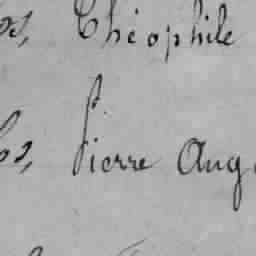 Théophile
Pierre Aug